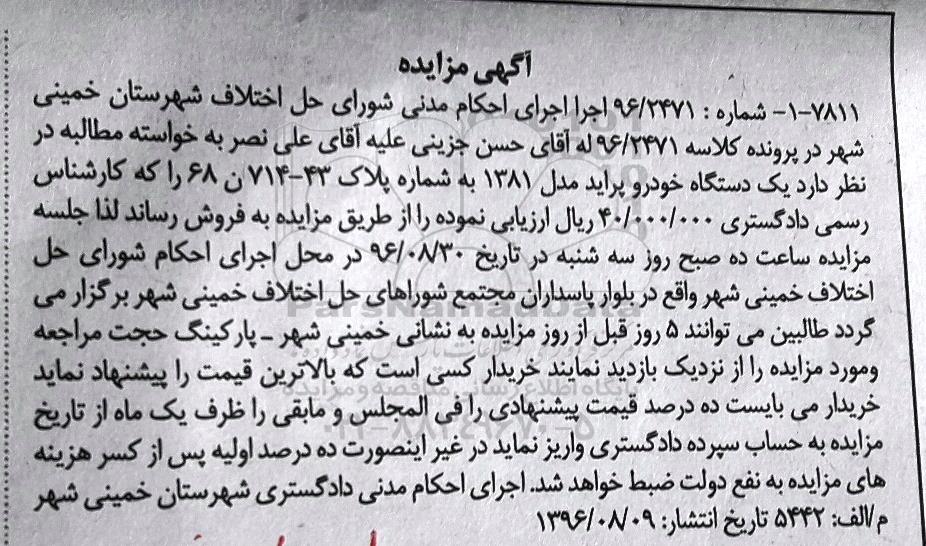 آگهی مزایده
۱-۷۸۱۱- شماره : ۹۶/۲۴۷۱ اجرا اجرای احکام مدنی شورای حل اختلاف شهرستان خمینی
شهر در پرونده کلاسه ۹۶/۲۴۷۱ له آقای حسن جزینی علیه آقای علی نصر به خواسته مطالبه در
نظر دارد یک دستگاه خودرو پراید مدل ۱۳۸۱ به شماره پلاک ۴۳-۷۱۴ ن ۶۸ را که کارشناس
رسمی دادگستری ۴۰/۰۰۰/۰۰۰ ریال ارزیابی نموده را از طریق مزایده به فروش رساند لذا جلسه
مزایده ساعت ده صبح روز سه شنبه در تاریخ ۹۶/۰۸/۳۰ در محل اجرای احکام شورای حل
اختلاف خمینی شهر واقع در بلوار پاسداران مجتمع شوراهای حل اختلاف خمینی شهر برگزار می
گردد طالبین می توانند ۵ روز قبل از روز مزایده به نشانی خمینی شهر ـ پارکینگ حجت مراجعه
ومورد مزایده را از نزدیک بازدید نمایند خریدار کسی است که بالاترین قیمت را پیشنهاد نماید
خریدار می بایست ده درصد قیمت پیشنهادی را فی المجلس و مابقی را ظرف یک ماه از تاریخ
مزایده به حساب سپرده دادگستری واریز نماید در غیر اینصورت ده درصد اولیه پس از کسر هزینه
های مزایده به نفع دولت ضبط خواهد شد. اجرای احکام مدنی دادگستری شهرستان خمینی شهر
م/الف: ۵۴۴۲ تاریخ انتشار: ۱۳۹۶/۰۸/۰۹
ParsNamadData
پایگاه اطلاع رسانی مناقصه و مزایده
۰۲۱-۸۸۳۴۹۶۷۰-۵